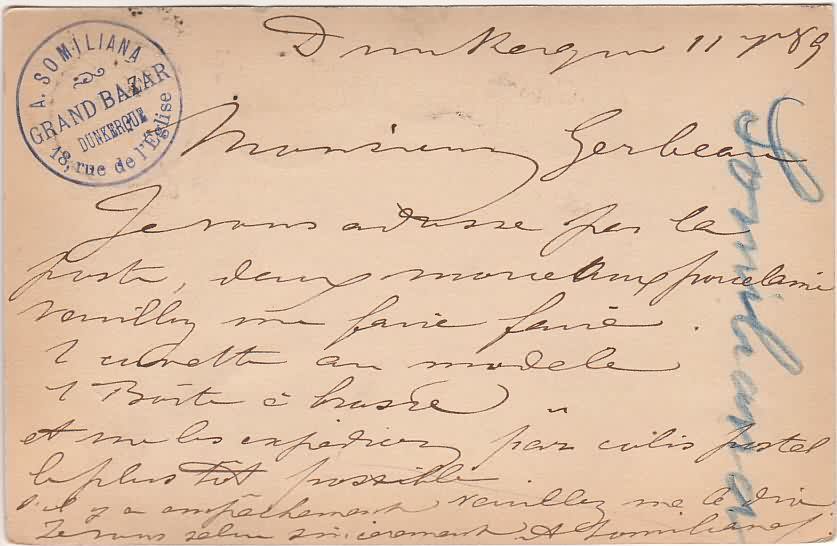 A. SOMILIANA
GRAND BAZAR
DUNKERQUE
18, rue de l'Eglise
Dunkerque 11 7re 89
Monsieur Gerbeau
Je vous adresse par la
poste, deux morceaux porcelaine
veuillez me faire faire
1 cuvette au modele
1 Boite à brosse "
et me les expedier par colis postal
le plus tôt possible
s'il y a empêchement veuillez me le dire
Je vous salue sincerement A Somiliana
Somiliana